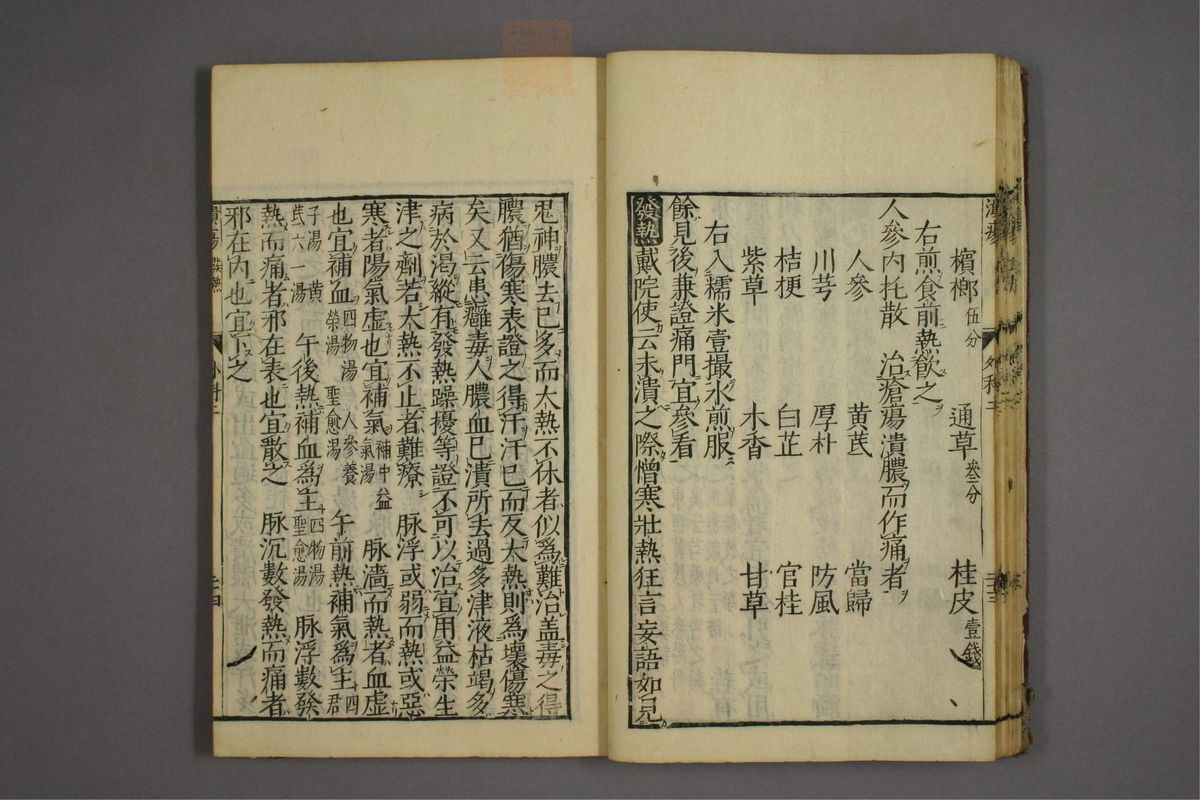 潰瘍 外科二 二十三
檳榔伍分 通草叄分 桂皮壹錢
右煎食前熱飮之
人參內托散 治瘡瘍潰膿而作痛者
人參 黄芪 當歸
川芎 厚朴 防風
桔梗 白芷 官桂
紫草 木香 甘草
右入糯米壹撮水煎服
餘見後兼證痛門宜參看
發熱戴院使云未潰之際憎寒壯熱狂言妄語如見
鬼神膿去已多而大熱不休者似爲難治盖毒之得
膿猶傷寒表證之得汗汗已而反大熱則爲壞傷寒
矣又云患癰毒人膿血已潰所去過多津液枯竭多
病於渴縱有發熱躁擾等證不可以治宜用益榮生
津之劑若大熱不止者難療 脉浮或弱而熱或惡
寒者陽氣虛也宜補氣補中益氣湯 脉濇而熱者血虛
也宜補血四物湯人參養榮湯聖愈湯 午前熱補氣爲主四君
子湯黄芪六一湯 午後熱補血爲主四物湯聖愈湯 脉浮數發
熱而痛者邪在表也宜散之 脉沉數發熱而痛者
邪在內也宜下之
潰瘍 發熱 外科二 二十四